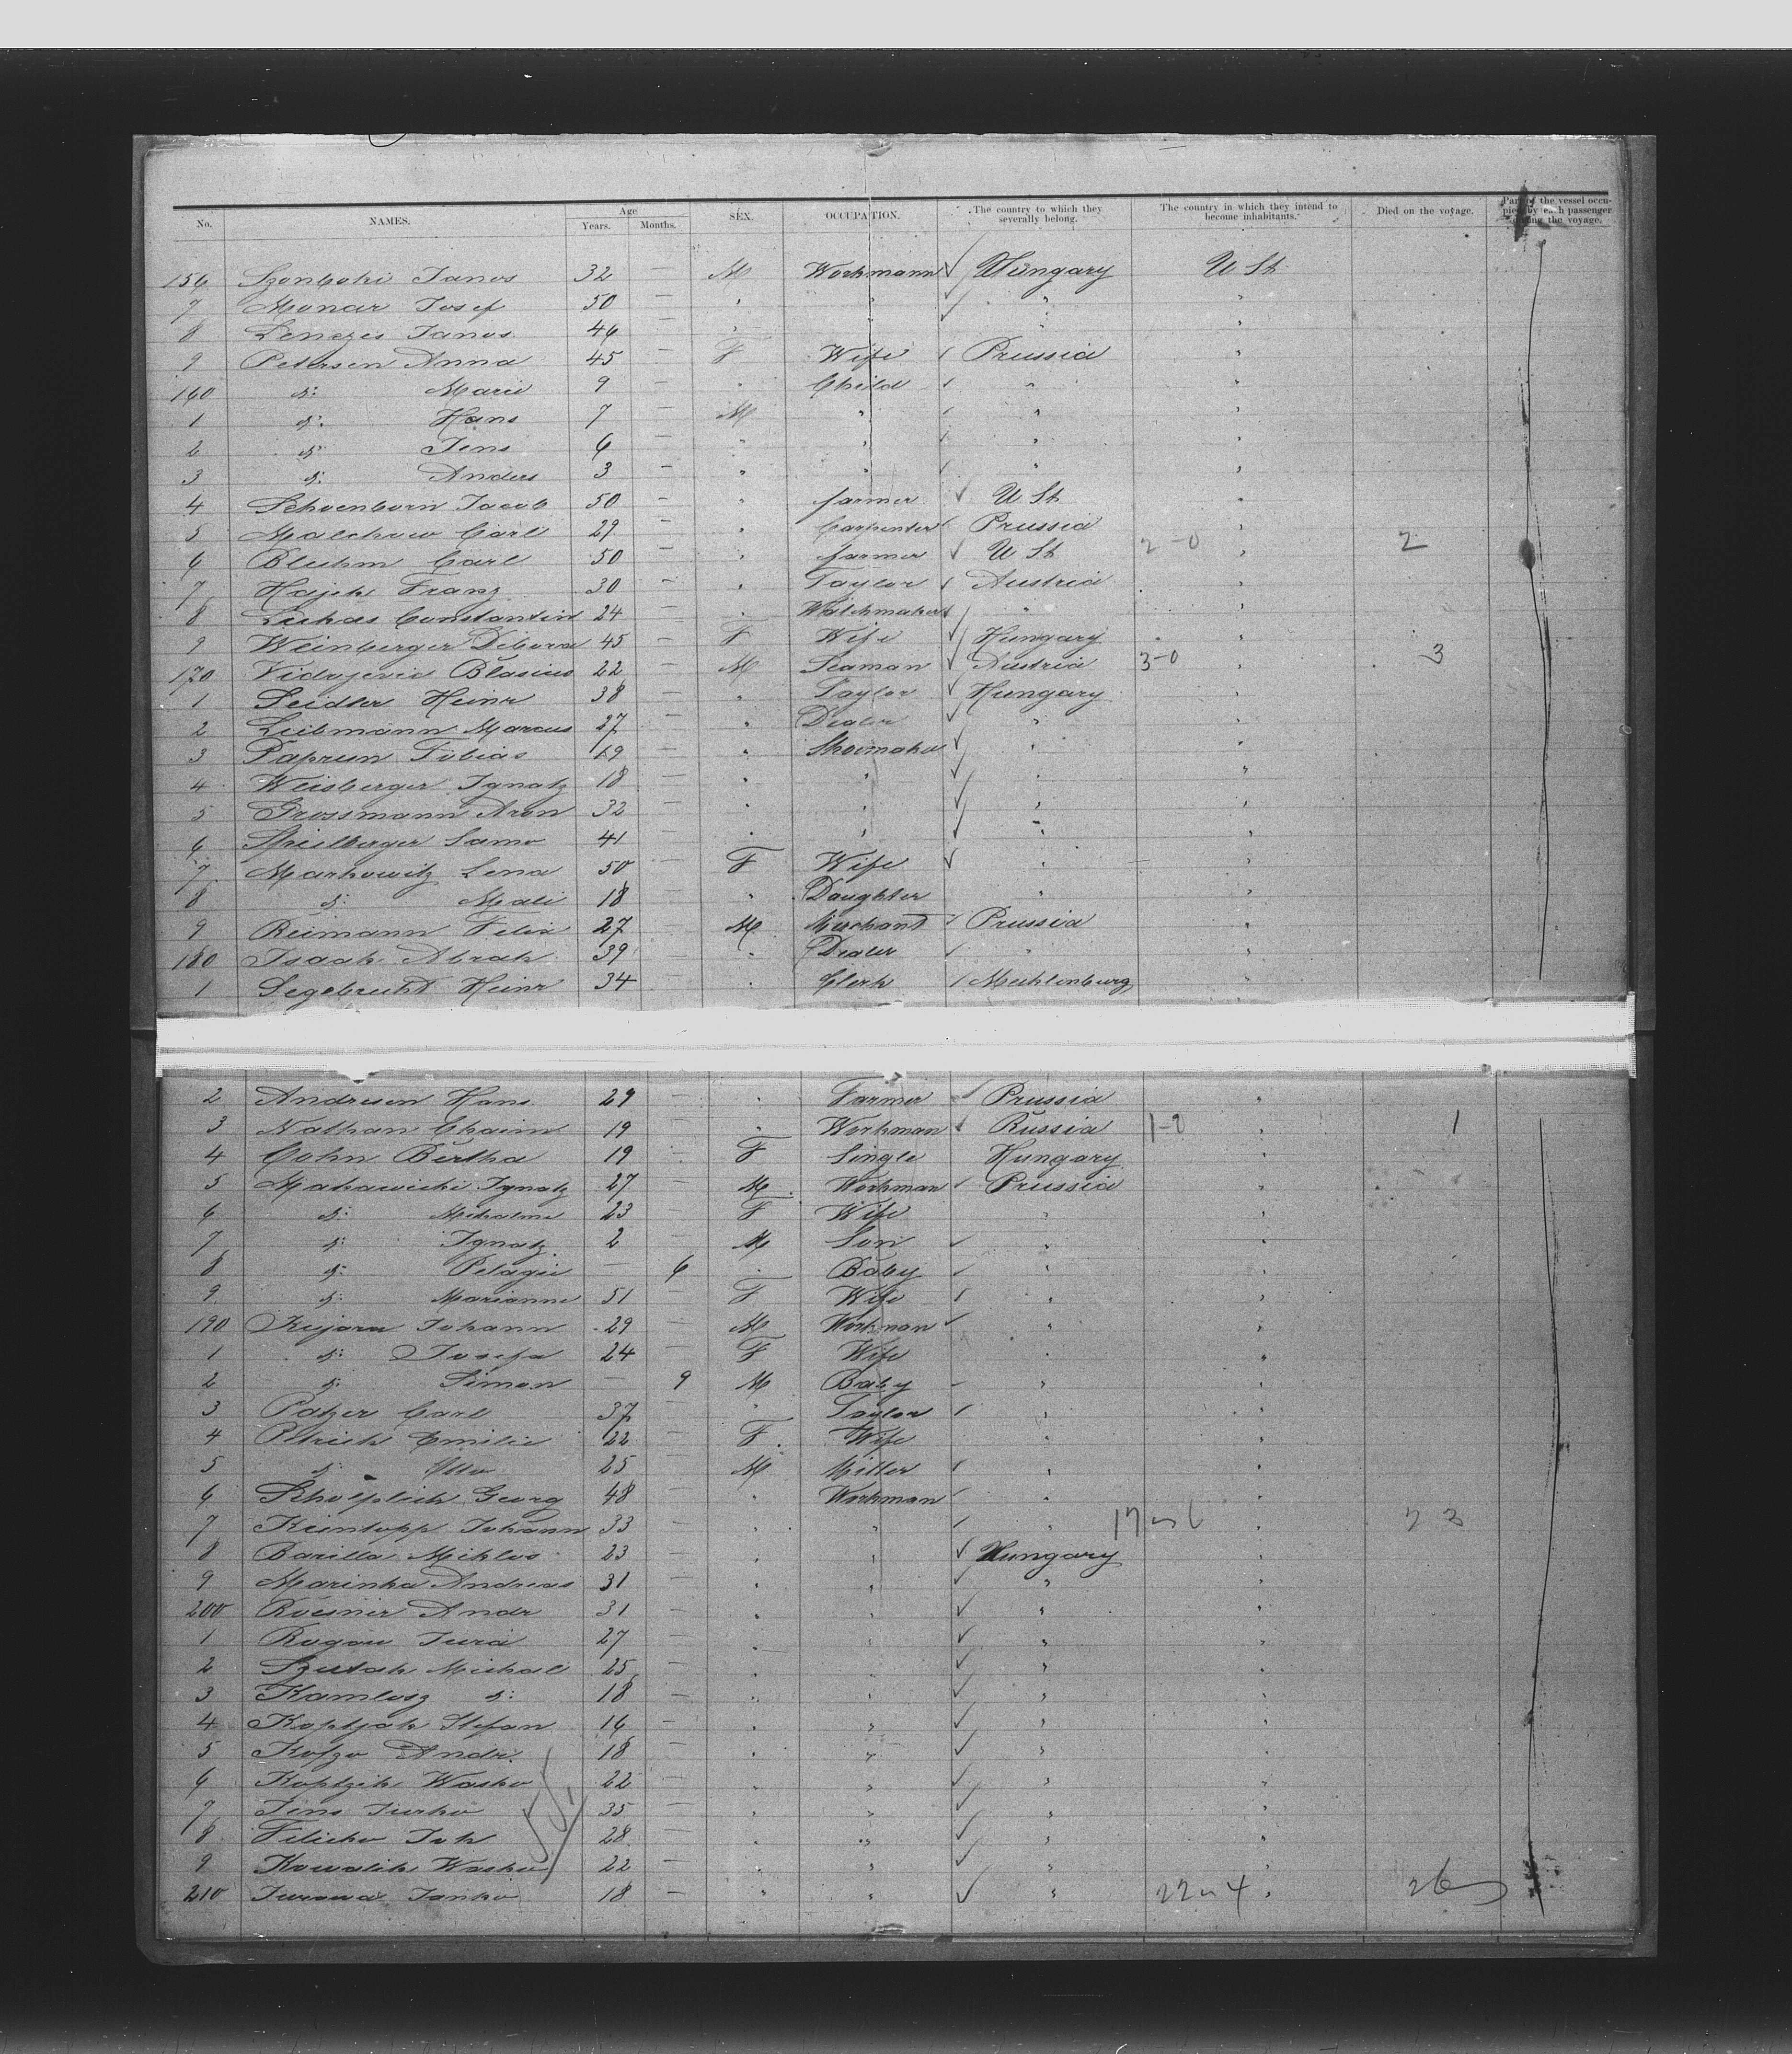 No. NAMES. Age Years. Months. SEX. OCCUPATION. The country to which they severally belong. The country in which they intend to become inhabitants. Died on the voyage. Part of the vessel occupied by each passenger during the voyage.
156 Janos 32 — M Workmann Hungary U St.
7 Josef 50 — " " " "
8 Janos 46 — " " " "
9 Petersen Anna 45 — F Wife Prussia "
160 d: Marie 9 — " Child " "
1 d: Hans 7 — M " " "
2 d: Jens 6 — " " " "
3 d: Anders 3 — " " " "
4 Schoenborn Jacob 50 — " farmer U St "
5 Malchow Carl 29 — " Carpenter Prussia "
6 Bluhm Carl 50 — " farmer U St 2-0 " 2
7 Hajek Franz 30 — " Taylor Austria "
8 Lukas Constantin 24 — " Watchmaker " "
9 Weinberger Debora 45 — F Wife Hungary "
170 Vidojevic Blasius 22 — M Seaman Austria 3-0 " 3
1 Seidler Heinr 38 — " Taylor Hungary "
2 Liebmann Marcus 27 — " Dealer " "
3 Paprun Tobias 19 — " Shoemaker " "
4 Weisberger Ignatz 18 — " " " "
5 Grossmann Aron 32 — " " " "
6 Spielberger Samo 41 — " " " "
7 Markowitz Lena 50 — F Wife " "
8 d: Mali 18 — " Daughter " "
9 Reimann Felix 27 — M Merchant Prussia "
180 Isaak Abrah 39 — " Dealer " "
1 Segebrecht Heinr 34 — " Clerk Mecklenburg "
2 Andresen Hans 29 — " Farmer Prussia "
3 Nathan Chaim 19 — " Workman Russia 1-0 " 1
4 Cohn Bertha 19 — F Single Hungary "
5 Makawicki Ignatz 27 — M Workman Prussia "
6 d: 23 — F Wife " "
7 d: Ignatz 2 — M Son " "
8 d: Pelagie — 6 " Baby " "
9 d: Marianne 51 — F Wife " "
190 Kujawa Johann 29 — M Workman " "
1 d: Josefa 24 — F Wife " "
2 d: Simon — 9 M Baby " "
3 Patzer Carl 37 " Taylor " "
4 Petrich Emilie 22 — F Wife " "
5 d: Otto 25 — M Miller " "
6 Georg 48 — " Workman " "
7 Kientopp Johann 33 — " " " "
8 Barilla Miklos 23 — " " Hungary "
9 Marinka Andreas 31 — " " " "
200 Roesner Andr 31 — " " " "
1 Jura 27 — " " " "
2 Michael 25 — " " " "
3 Kamlosz d: 18 — " " " "
4 Koptjak Stefan 16 — " " " "
5 Andr. 18 — " " " "
6 Koptzik Wasko 22 — " " " "
7 Jens Jurko 35 — " " " "
8 Filicko Joh 28 — " " " "
9 Kowalik Wasko 22 — " " " "
210 Janko 18 — " " " 22-4 " 26